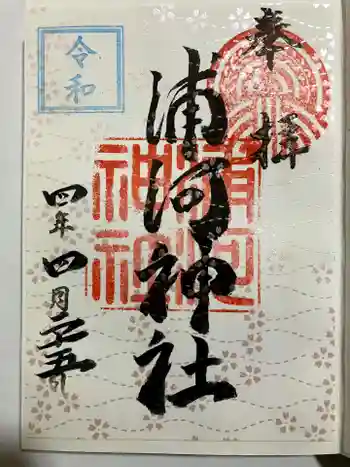 奉拝
浦河神社
令和
四年四月二十五日